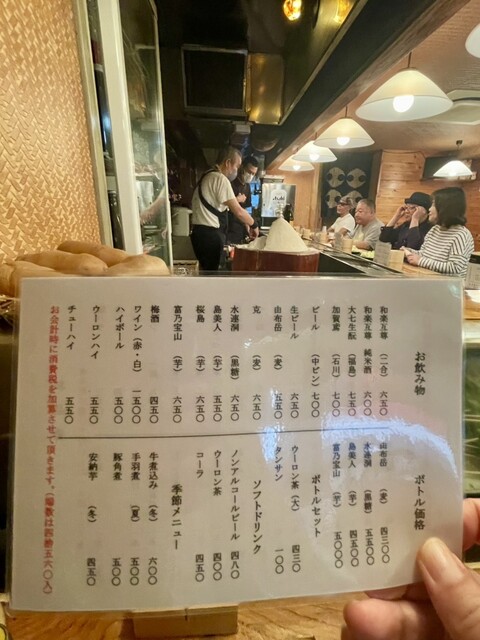 お飲み物
和楽互尊 (二合) 六五〇
和楽互尊 純米酒 六〇〇
大七生酛 (福島) 七五〇
加賀鳶 (石川) 七〇〇
ビール (中ビン) 七〇〇
生ビール 六五〇
由布岳 (麦) 五五〇
克 (麦) 六五〇
水連洞 (黒糖) 六五〇
島美人 (芋) 五五〇
桜島 (芋) 六五〇
富乃宝山 (芋) 六五〇
梅酒 四五〇
ワイン (赤・白) 一五〇〇
ハイボール 五〇〇
ウーロンハイ 五五〇
チューハイ 五五〇
ボトル価格
由布岳 (麦) 四三〇〇
水連洞 (黒糖) 五五〇〇
島美人 (芋) 四五〇〇
富乃宝山 (芋) 五〇〇〇
ボトルセット
ウーロン茶 (大) 四三〇
タンサン 一〇〇
ソフトドリンク
ノンアルコールビール 四八〇
ウーロン茶 四〇〇
コーラ 四五〇
季節メニュー
牛煮込み (冬) 六〇〇
手羽煮 (夏) 五〇〇
豚角煮 五五〇
安納芋 (冬) 四五〇
お会計時に消費税を加算させて頂きます。